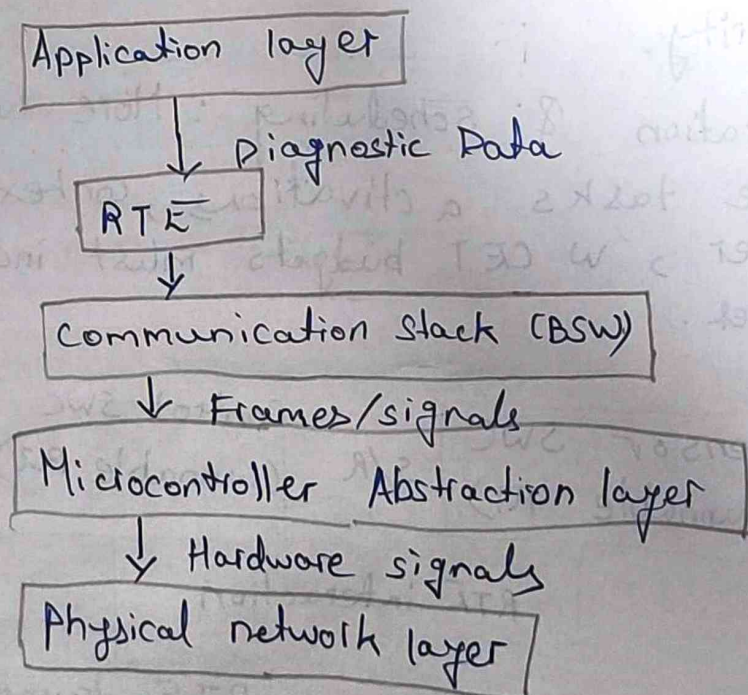 Application layer
Diagnostic Data
RTE
Communication Stack (BSW)
Frames/signals
Microcontroller Abstraction layer
Hardware signals
Physical network layer